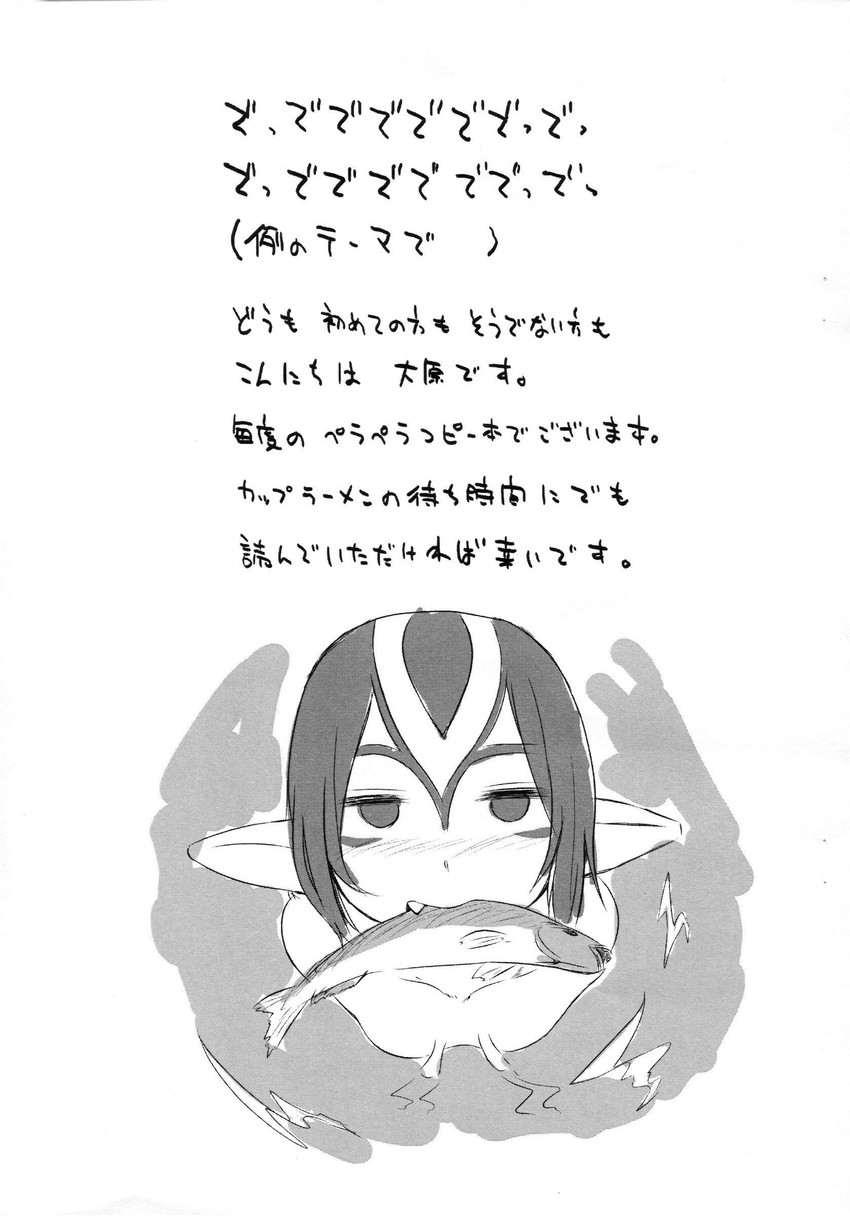 でっででででででっでっ
でっでででで ででっでっ
(例のテーマで )
どうも 初めての方も そうでない方も
こんにちは 大原です。
毎度の ペラペラコピー本でございます。
カップラーメンの待ち時間にでも
読んでいただければ幸いです。